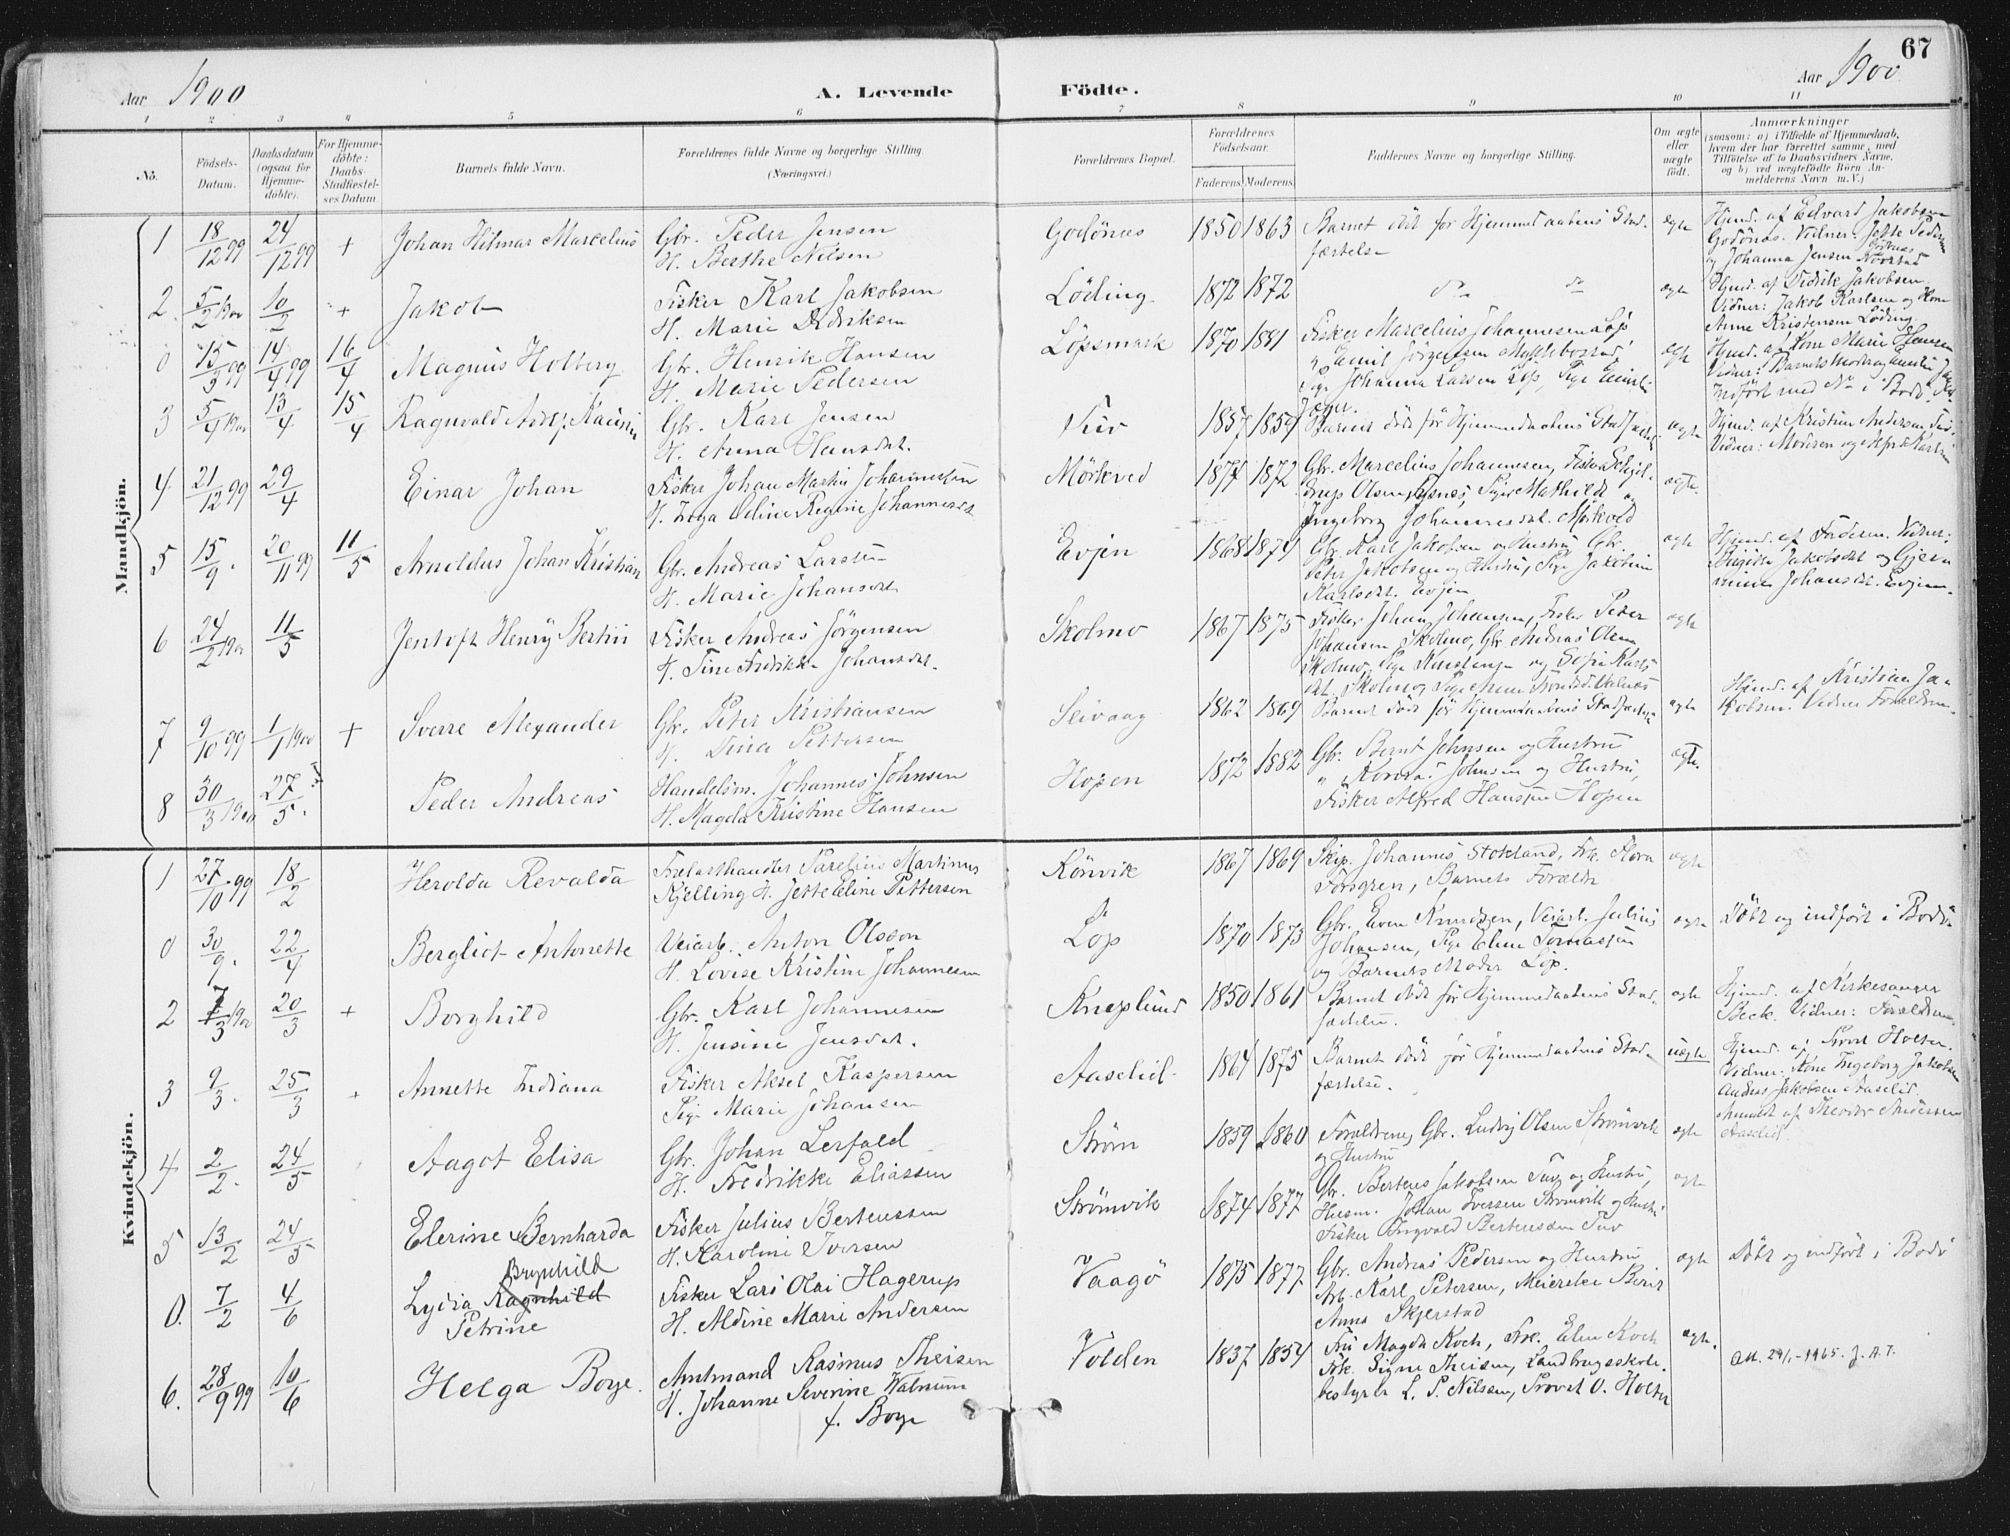 67
Aar 1900
A. Levende
Födte.
Aar 1900
1 2 3 4 5 6 7 8 9 10 11
No.
Födsels-
Datum.
Daabsdatum
(ogsaa for
Hjemme-
døbte).
For Hjemme-
døbte:
Daabs-
Stadfæstel-
ses Datum
Barnets fulde Navn.
Forældrenes fulde Navne og borgerlige Stilling.
(Næringsvei.)
Forældrenes Bopæl.
Forældrenes
Födselsaar.
Faderens Moderens
Faddernes Navne og borgerlige Stilling.
Om ægte
eller
uægte
födt.
Anmærkninger
(saasom: a) i Tilfælde af Hjemmedaab,
hvem der har forrettet samme, med
Tilföielse af to Daabsvidners Navne,
og b) ved uægtefödte Börn An-
melderens Navn m. V.)
Mandkjön.
1 18/12 99 24/12 99 + Johan Hilmar Marcelius
Gbr. Peder Jensen
H. Berthe Nilsen
Godönes 1850 1863
Barnet död før Hjemmedaabens Stad-
fæstelse
ægte
Hjmd. af Edvard Jakobsen
Godönas. Vidner: Jette Peders
og Johanna Jensen
2. 5/2 1900 10/2 + Jakob
Fisker Karl Jakobsen
H. Marie Didriksen
Löding 1872 1872 do do ægte
Hjmd. af Didrik Jakobsen
Vidner: Jakob Karlsen og Kone
Anne Kristensen Löding
0 15/3 99 14/4 99 16/4 Magnus Holberg
Gbr. Henrik Hansen
H. Marie Pedersen
Löpsmark 1870 1881
Fisker Marcelius Johannesen Löp
Pige Johanna Larsen Löp, Pige Emili
ægte
Hjmd. af Kone Marie Hansen
Indført med No i Bodö
3 5/4 1900 13/4 15/4 Ragnvald Adolf Kaurin
Gbr. Karl Jensen
H. Anna Hansdat.
Tuv 1857 1859
Barnet döde før Hjemmedaabens Stadfæstelse
ægte
Hjmd. af Kristian Andersen Tuv.
Vidner: Moderen og Alfred Karlsen
4 21/12 99 29/4 Einar Johan
Fisker Johan Martin Johannesen
H. Inga Oline Regine Johannesdt.
Mörkved 1874 1872
Gbr. Marcelius Johannesen,
Olsen, Pige Mathilde og
Ingeborg Johannesdat. Mörkved
ægte.
5 15/9. 20/11 99 11/5 Arnoldus Johan Kristian
Gbr. Andreas Larsen
H. Marie Johansdt
Evjen 1868 1874
Gbr. Karl Jakobsen og Hustru, Gbr.
Peter Jakobsen og Hustru, Pige
Karlsdt. Evjen
ægte
Hjmd. af Faderen. Vidner:
Birgitte Jakobsdt og Gjer
mine Johansdt. Evjen.
6 24/2 1900 11/5 Jentoft Henry Bertin
Fisker Andreas Jörgensen
H. Tine Fredrikke Johansdat.
Skolmo 1867 1875
Fisker Johan Johansen, Fisker Peter
Johansen Skolmo, Gbr. Andreas Olsen
Skolmo, Pige Konstanse og Sofie Karls
dt. Skolmo,
ægte
7 9/10 99 1/1 1900 + Sverre Alexander
Gbr. Peter Kristiansen
H. Dina Pettersen
Seivaag 1862 1869
Barnet döde før Hjemmedaabens Stadfæstelse
ægte
Hjmd. af Kristian Ja-
kobsen. Vidner Forældrene.
8 30/3 1900 27/5. Peder Andreas
Handelsm. Johannes Johnsen
H. Magda Kristine Hansen
Hopen 1872 1882
Gbr. Bernt Johnsen og Hustru
" Johnsen og Hustru,
Fisker Alfred Hanssen Hopen
ægte.
Kvindekjön.
1 27/10 99 18/2 Herolda Revalda
Trælasthandler Parelius Martinus
Kjelling H. Jette Eline Pettersen
Rönvik 1867 1869
Skip. Johannes Stokland, Frk. Flora
Forsgren, Barnets Foræld.
ægte
0 30/9. 22/4 Bergliot Antonette
Veiarb. Anton Olsson
H. Lovise Kristine Johannesen
Löp 1870 1873
Gbr. Even Knudsen, Veiarb. Julius
Johansen, Pige Eline Tomassen
og Barnets Moder Löp.
ægte
Döbt og indfört i Bodö
2 7/3 1900 20/3 + Borghild
Gbr. Karl Johannesen
H. Jensine Jensdat.
Knaplund 1850 1861
Barnet döde før Hjemmedaabens Stad-
fæstelse.
ægte
Hjmd. af Kirkesanger
Beck. Vidner: Forældrene
3 9/3. 25/3 + Annette Indiana
Fisker Aksel Kaspersen
Pige Marie Johansen
Aaselid 1864 1875
Barnet döde før Hjemmedaabens Stad-
fæstelse.
uægte
Hjmd. af Provst Holter.
Vidner: Kone Ingeborg Jakobsen
Anders Jakobsen Aaselid.
Anmeldt af Theodor Andersen
Aaselid.
4 2/2. 24/5 Aagot Elisa
Gbr. Johan Lerfald
H. Fredrikke Eliassen
Ström 1859 1860
Forældrene, Gbr. Ludvig Olsen Strömsvik
og Hustru
ægte
5 13/2 24/5 Elerine Bernharda
Fisker Julius Berteussen
H. Karoline Iversen
Strömvik 1874 1877
Gbr. Berteus Jakobsen Tuv og Hustru,
Husm. Johan Iversen Strömvik og Hustr.
Fisker Ingvald Berteussen Tuv
ægte
0. 7/2 4/6 Lydia Ragnhild Brynhild
Petrine
Fisker Lars Olai Hagerup
H. Aldine Marie Andersen
Vaagö 1875 1877
Gbr. Andreas Pedersen og Hustru
Arb. Karl Petersen, Meierske Berit
Anna Skjerstad
ægte
Döbt og indfört i Bodö
6. 28/9 99 10/6 Helga Boye
Amtmand Rasmus Theisen
H. Johanne Severine Walnum
f. Boye
Volden 1837 1854
Fru Magda Koch, Frk. Elen Koch
Frk. Signe Theisen, Landbrugsskole-
bestyrer L. P. Nilsen, Provst O. Holter
ægte.
Att. 24/1-1965. J.A.T.